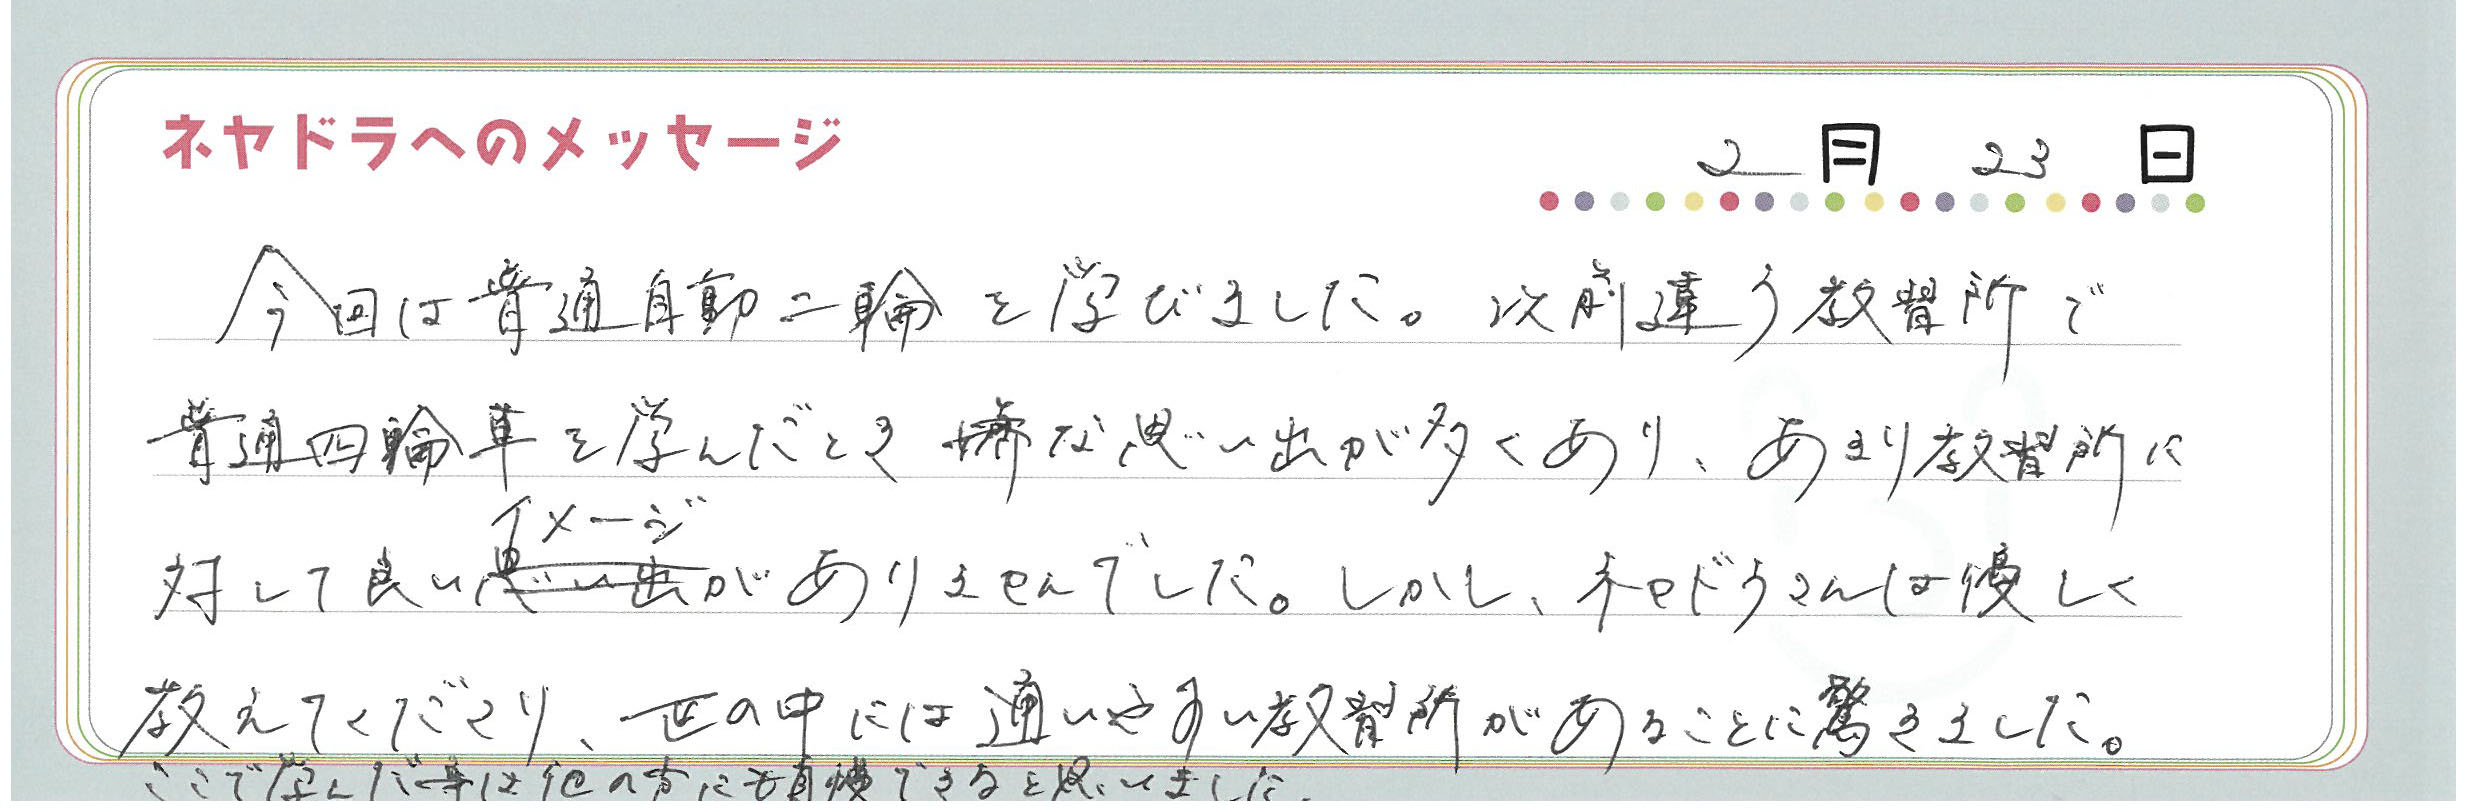 ネヤドラへのメッセージ
2月 23日
今回は普通自動二輪を学びました。以前違う教習所で
普通四輪車を学んだとき嫌な思い出が多くあり、あまり教習所に
イメージ
対して良い思い出がありませんでした。しかし、ネヤドラさんは優しく
教えてくださり、世の中には通いやすい教習所があることに驚きました。
ここで学んだ事は他の方にも自慢できると思いました。